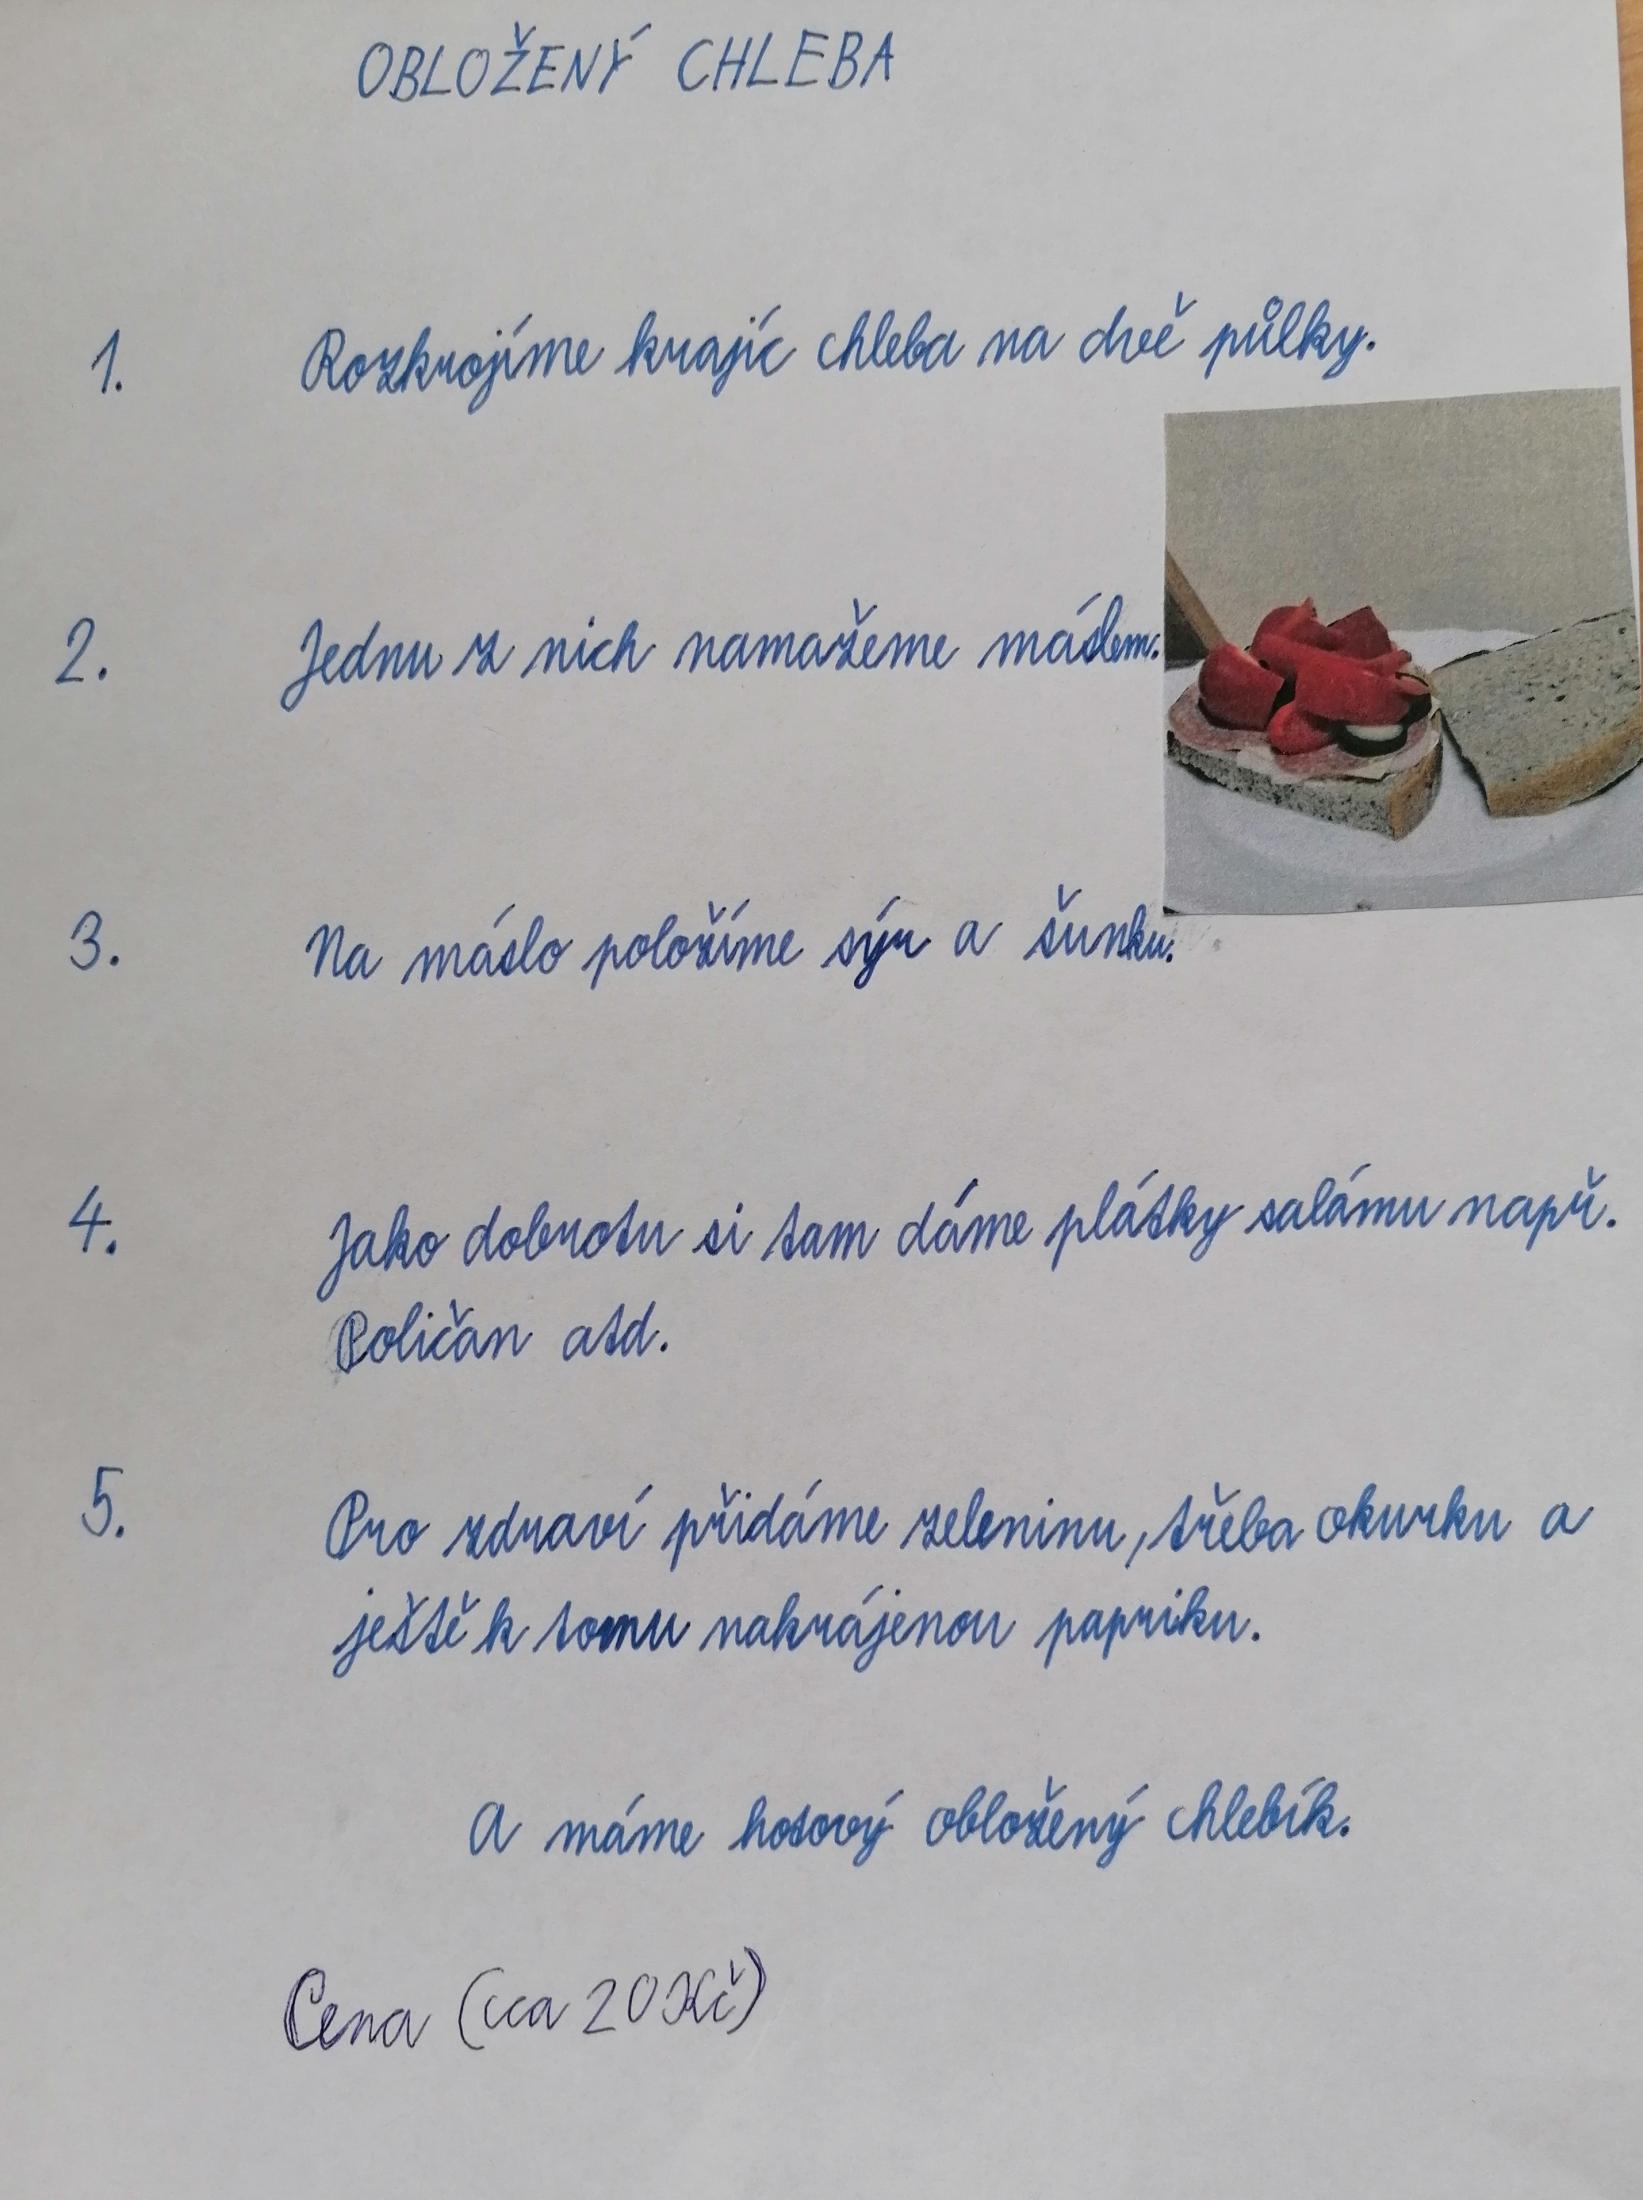 OBLOŽENÝ CHLEBA
1. Rozkrojíme krajíc chleba na dvě půlky.
2. Jednu z nich namažeme máslem.
3. Na máslo položíme sýr a šunku.
4. Jako dobrotu si tam dáme plátky salámu např.
Poličan atd.
5. Pro zdraví přidáme zeleninu, třeba okurku a
ještě k tomu nakrájenou papriku.
A máme hotový obložený chlebík.
Cena (cca 20Kč)